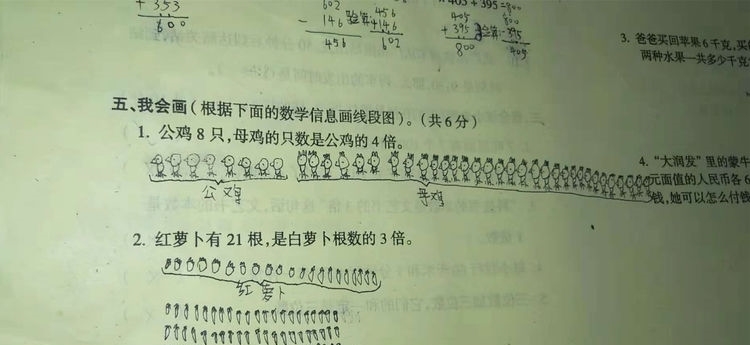 + 353
600
602
- 146
456
456
+ 146
602
405 + 395 = 800
405
+ 395
800
800
- 395
405
3. 爸爸买回苹果6千克,买
两种水果一共多少千克
五、我会画(根据下面的数学信息画线段图)。(共6分)
1. 公鸡8只,母鸡的只数是公鸡的4倍。
公鸡
母鸡
4. “大润发”里的蒙牛
元面值的人民币各6
钱,她可以怎么付钱
2. 红萝卜有21根,是白萝卜根数的3倍。
红萝卜